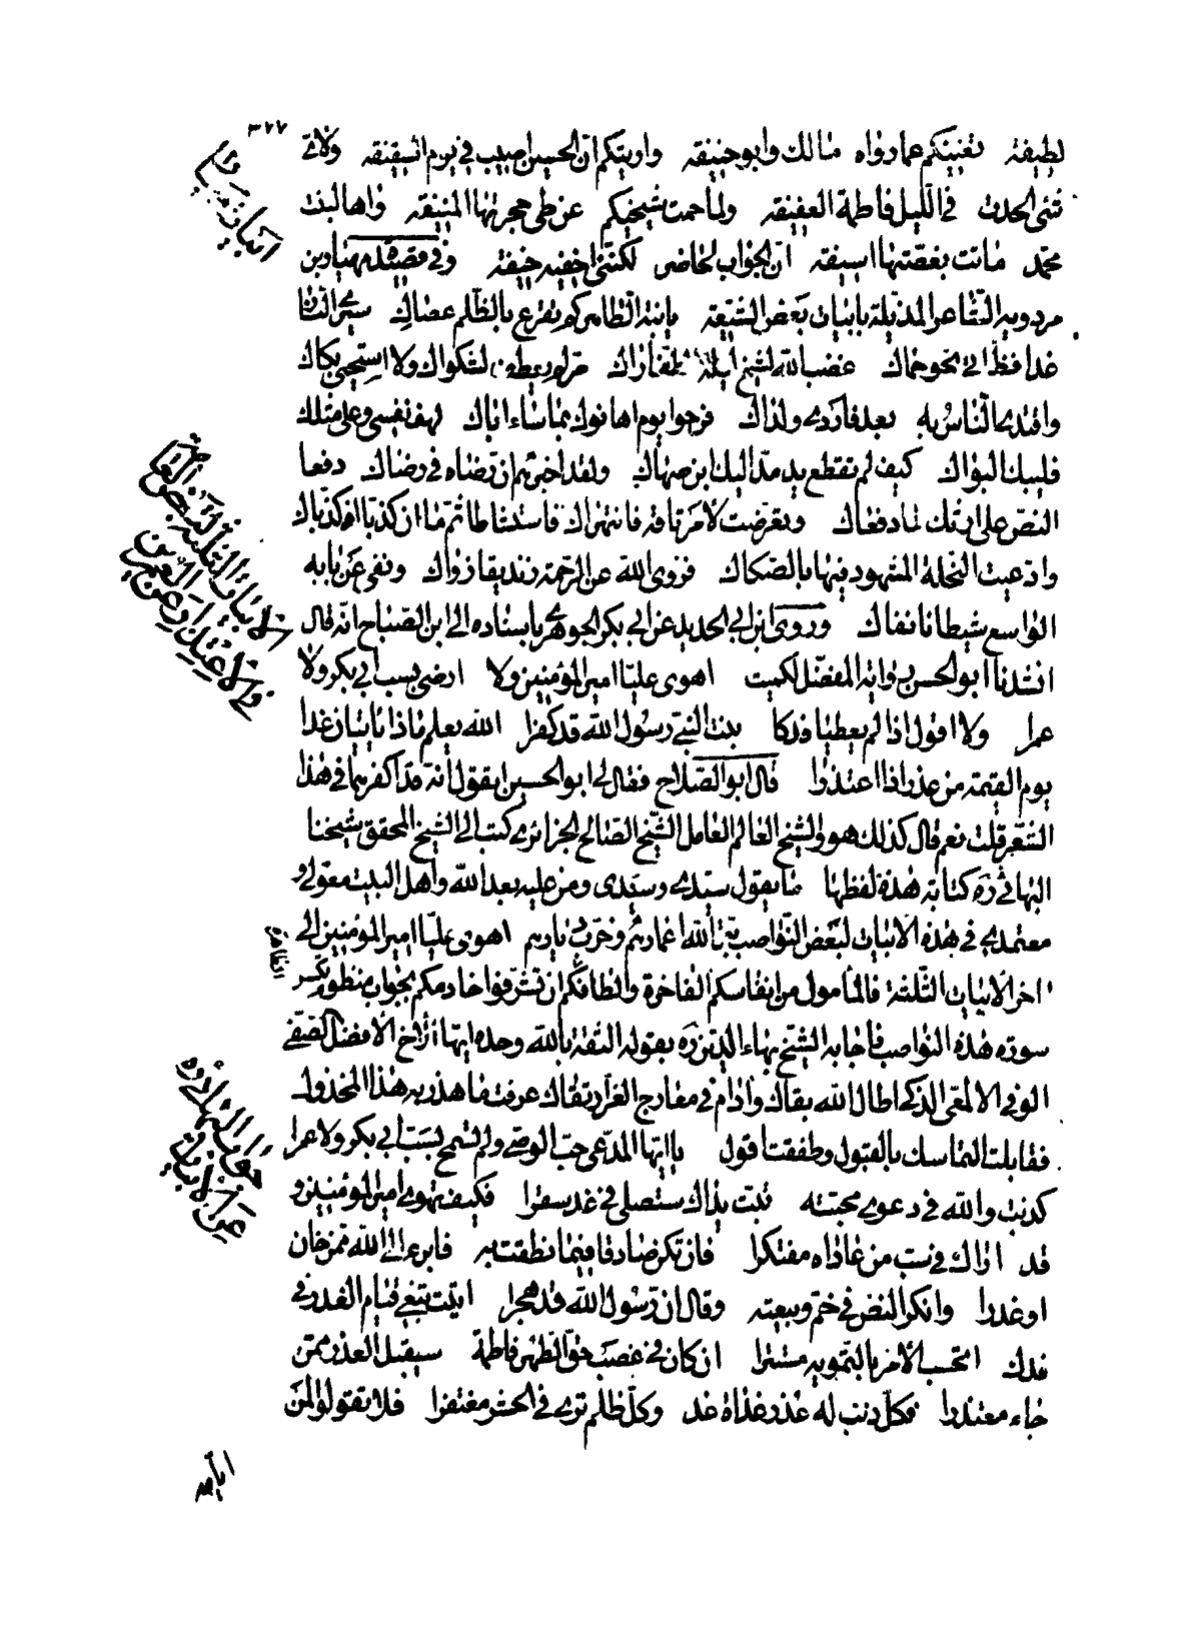 ٣٧٧
لطيفة تغنيكم عما رواه مالك وابو حنيفة واريتكم ان الحسين اصيب في يوم السقيفة ولاي
شئ الحدت في الليل فاطمة العفيفة ولما حمت شيخيكم عن طي حجرتها المنيفة واها لبنت
محمد ماتت بغصتها اسيفة ان الجواب لحاضر لكنني اخفيه خيفة وفي قصيدة مهيار بن
مردويه الشاعر المذيلة بابيات بعض الشيعة يا ابنة الطاهر كم تقرع بالظلم عصاك
غدا فظا الى نحو حماك غضب الله لخطب ليلة الطف عراك مر لم يعطف لشكواك ولا استحيى بكاك
واقتدى الناس به بعد فاردى ولداك فرحوا يوم اهانوك بما ساء اباك لهف نفسي وعلى مثلك
فليبك البواك كيف لم تقطع يد مد اليك ابن صهاك ولقد اخبرهم ان رضاه في رضاك دفعا
النص على ارثك لما دفعاك وتعرضت لامر تافه فانتهراك فاستشاطا ثم ما ان كذبا ان كذباك
وادعيت النحلة المشهود فيها بالصكاك فزوى الله عن الرحمة زنديقا زواك ونفى عن بابه
الواسع شيطانا نفاك وروى ابن ابي الحديد عن ابي بكر الجوهري باسناده الى ابن الصباح انه قال
انشدنا ابو الحسن رواية المفضل لكميت اهوى عليا امير المؤمنين ولا ارضى بسب ابي بكر ولا
عمرا ولا اقول اذا لم يعطيا فدكا بنت النبي رسول الله قد كفرا الله يعلم ماذا ياتيان غدا
يوم القيمة من عذر اذا اعتذرا قال ابو الصلاح فقال لي ابو الحسين ايقول انه قد اكفرهما في هذا
الشعر قلت نعم قال كذلك هو والشيخ العالم العامل الشيخ الصالح الجزائري كتب الى الشيخ المحقق شيخنا
البهائي ره كتابة هذه لفظها ما يقول سيدي وسندي ومن عليه بعد الله واهل البيت معولي و
معتمدي في هذه الابيات لبعض النواصب بتر الله اعمارهم وخرب ديارهم اهوى عليا امير المؤمنين الى
اخر الابيات الثلثة فالمأمول من انفاسكم الفاخرة والطافكم ان تشرفوا خادمكم بجواب منظور يكسر
سورة هذه النواصب فاجابه الشيخ بهاء الدين ره بقوله الثقة بالله وحده ايها الاخ الافضل الصفي
الوفي الالمعي الذكي اطال الله بقاك وادام في معارج العز ارتقاك عرفت ما هذر به هذا المخذول
فقابلت التماسك بالقبول وطفقت اقول يا ايها المدعي حب الوصي ولم تسمح بسب ابي بكر ولا عمرا
كذبت والله في دعوى محبته تبت يداك ستصلى في غد سقرا فكيف تهوى امير المؤمنين و
قد اراك في سب من عاداه مفتكرا فان تكن صادقا فيما نطقت به فابرء الى الله ممن خان
او غدرا وانكر النص في خم وبيعته وقال ان رسول الله قد هجرا اتيت تبغي قيام العذر في
فدك اتحسب الامر بالتمويه مستترا ان كان في غصب حق الطهر فاطمة سيقبل العذر ممن
جاء معتذرا فكل ذنب له عذر غداة غد وكل ظلم ترى في الحشر مغتفرا فلا تقولوا لمن
ايامه
الابيات
جواب البهائي ره
عن الابيات